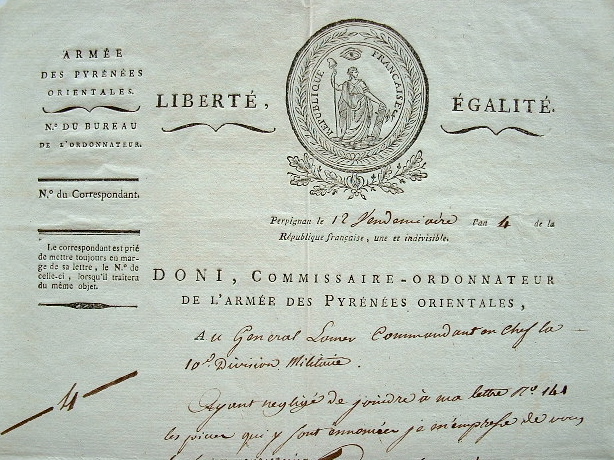 ARMÉE
DES PYRÉNÉES
ORIENTALES.
N.º DU BUREAU
DE L'ORDONNATEUR.
N.º du Correspondant.
Le correspondant est prié
de mettre toujours en mar-
ge de sa lettre, le N.º de
celle-ci, lorsqu'il traitera
du même objet.
4
LIBERTÉ,
RÉPUBLIQUE FRANÇAISE.
ÉGALITÉ.
Perpignan le 12 Vendemiaire l'an 4 de la
République française, une et indivisible.
DONI, COMMISSAIRE-ORDONNATEUR
DE L'ARMÉE DES PYRÉNÉES ORIENTALES,
Au General Lamer Commandant en Chef la
10.e Division Militaire.
Ayant negligé de joindre à ma lettre N.º 141
les pieces qui y sont annoncées je m'empresse de vous